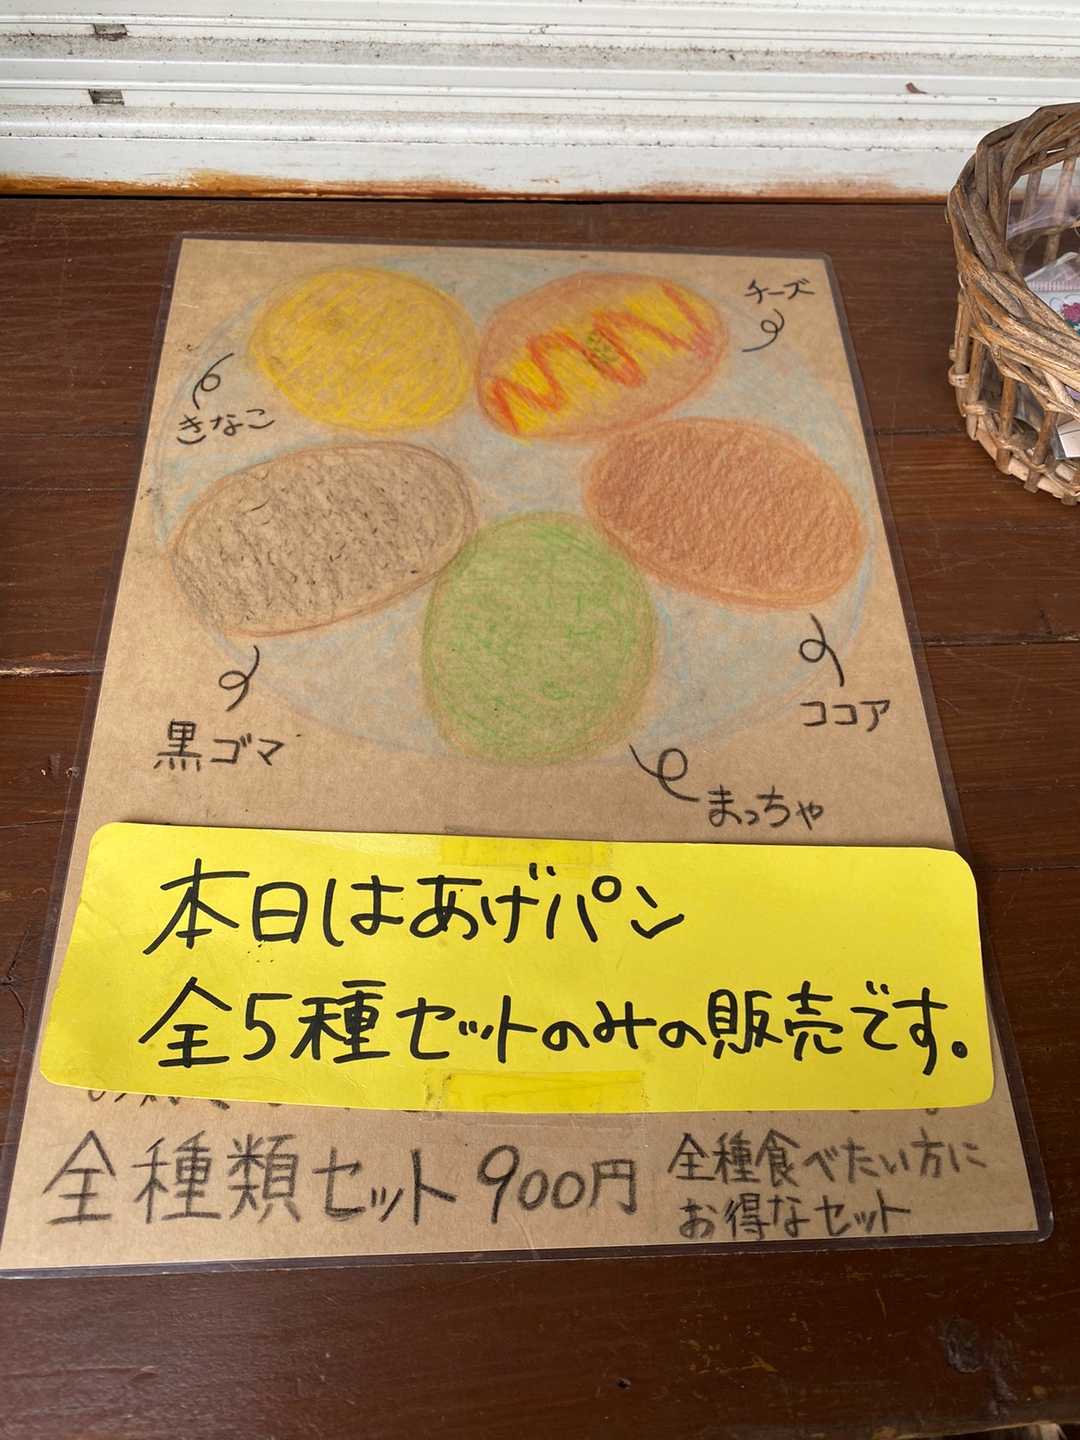 チーズ
きなこ
黒ゴマ
ココア
まっちゃ
本日はあげパン
全5種セットのみの販売です。
全種類セット 900円
全種食べたい方に
お得なセット